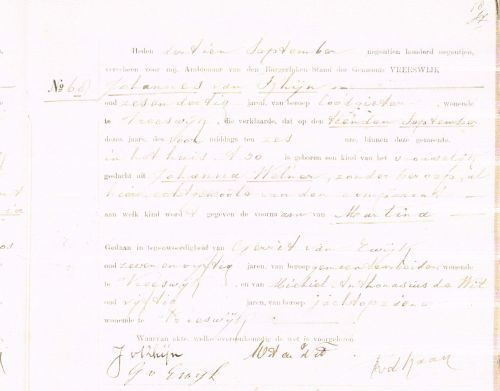 Heden dertien September negentien honderd negentien,
verscheen voor mij, Ambtenaar van den Burgerlijken Stand der Gemeente VREESWIJK
No 60 Johannes van Rhijn
oud zesendertig jaren, van beroep loodgieter, wonende
te Vreeswijk, die verklaarde, dat op den tienden September
dezes jaars, des voor middags ten zes ure, binnen deze gemeente,
in het huis A 30 is geboren een kind van het vrouwelijk
geslacht uit Johanna Welner, zonder beroep, al
hier, echtgenoote van den comparant
aan welk kind wordt gegeven de voornaam van Martina
Gedaan in tegenwoordigheid van Gerrit van Ewijk
oud zeven en vijftig jaren, van beroep gemeentearbeider, wonende
te Vreeswijk, en van Michiel Anthonasius de Wit
oud vijftig jaren, van beroep jachtopziener
wonende te Vreeswijk
Waarvan akte, welke overeenkomstig de wet is voorgelezen
J v Rhijn
G v Ewijk